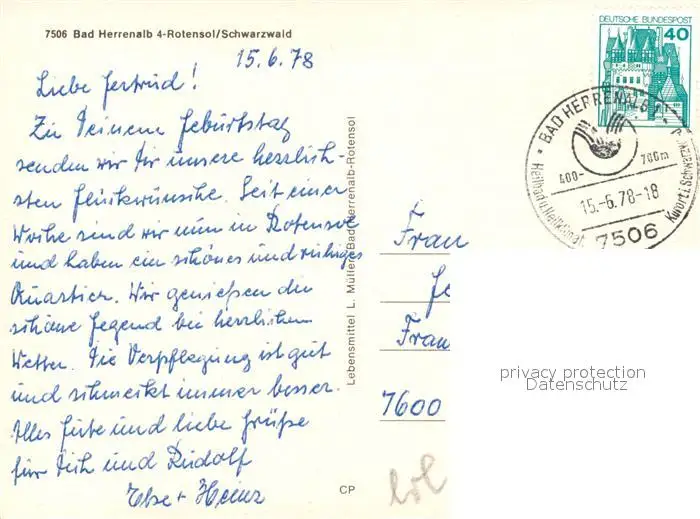 7506 Bad Herrenalb 4-Rotensol/Schwarzwald
15.6.78
Liebe Gertrud!
Zu Deinem Geburtstag
senden wir Dir unsere herzlich-
sten Glückwünsche. Seit einer
Woche sind wir nun in Rotensol
und haben ein schönes und ruhiges
Quartier. Wir genießen die
schöne Gegend bei herrlichem
Wetter. Die Verpflegung ist gut
und schmeckt immer besser.
Alles Gute und liebe Grüße
für Dich und Rudolf
Else + Heinz
Lebensmittel L. Müller, Bad Herrenalb-Rotensol
CP
DEUTSCHE BUNDESPOST
40
BAD HERRENALB 1
400-
700m
Heilbad u. Heilklimat.
Kurort i. Schwarzwald
15.-6.78-18
7506
Frau
Ge
Frau
7600
privacy protection
Datenschutz